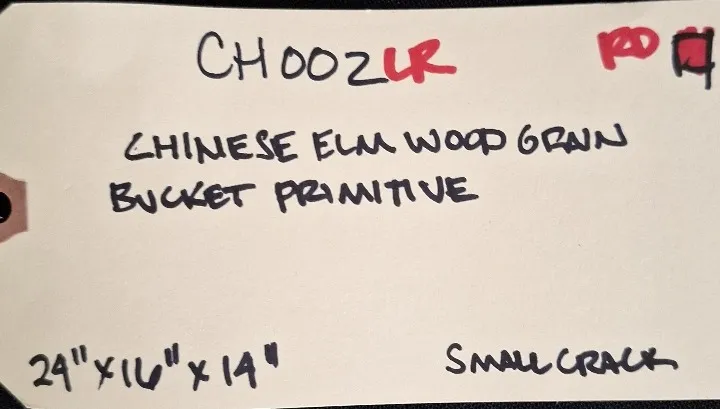 CH002LR RD
CHINESE ELM WOOD GRAIN
BUCKET PRIMITIVE
24" x 16" x 14" SMALL CRACK